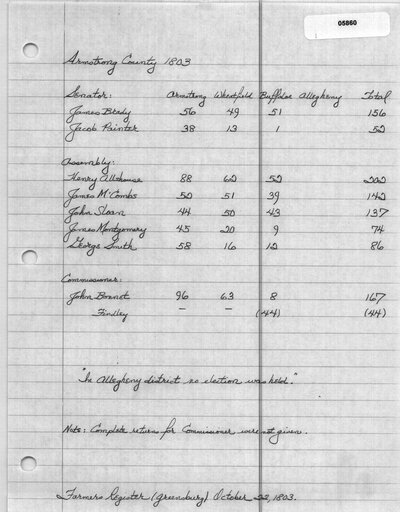 05860
Armstrong County 1803
Senator: Armstrong Wheatfield Buffaloe Allegheny Total
James Brady 56 49 51 156
Jacob Painter 38 13 1 52
Assembly:
Henry Allshouse 88 62 52 202
James McCombs 52 51 39 142
John Sloan 44 50 43 137
James Montgomery 45 20 9 74
George Smith 58 16 12 86
Commissioner:
John Bonnet 96 63 8 167
Findley — — (44) (44)
"In Allegheny district no election was held."
Note: Complete returns for Commissioner were not given.
Farmers Register (Greensburg) October 22, 1803.